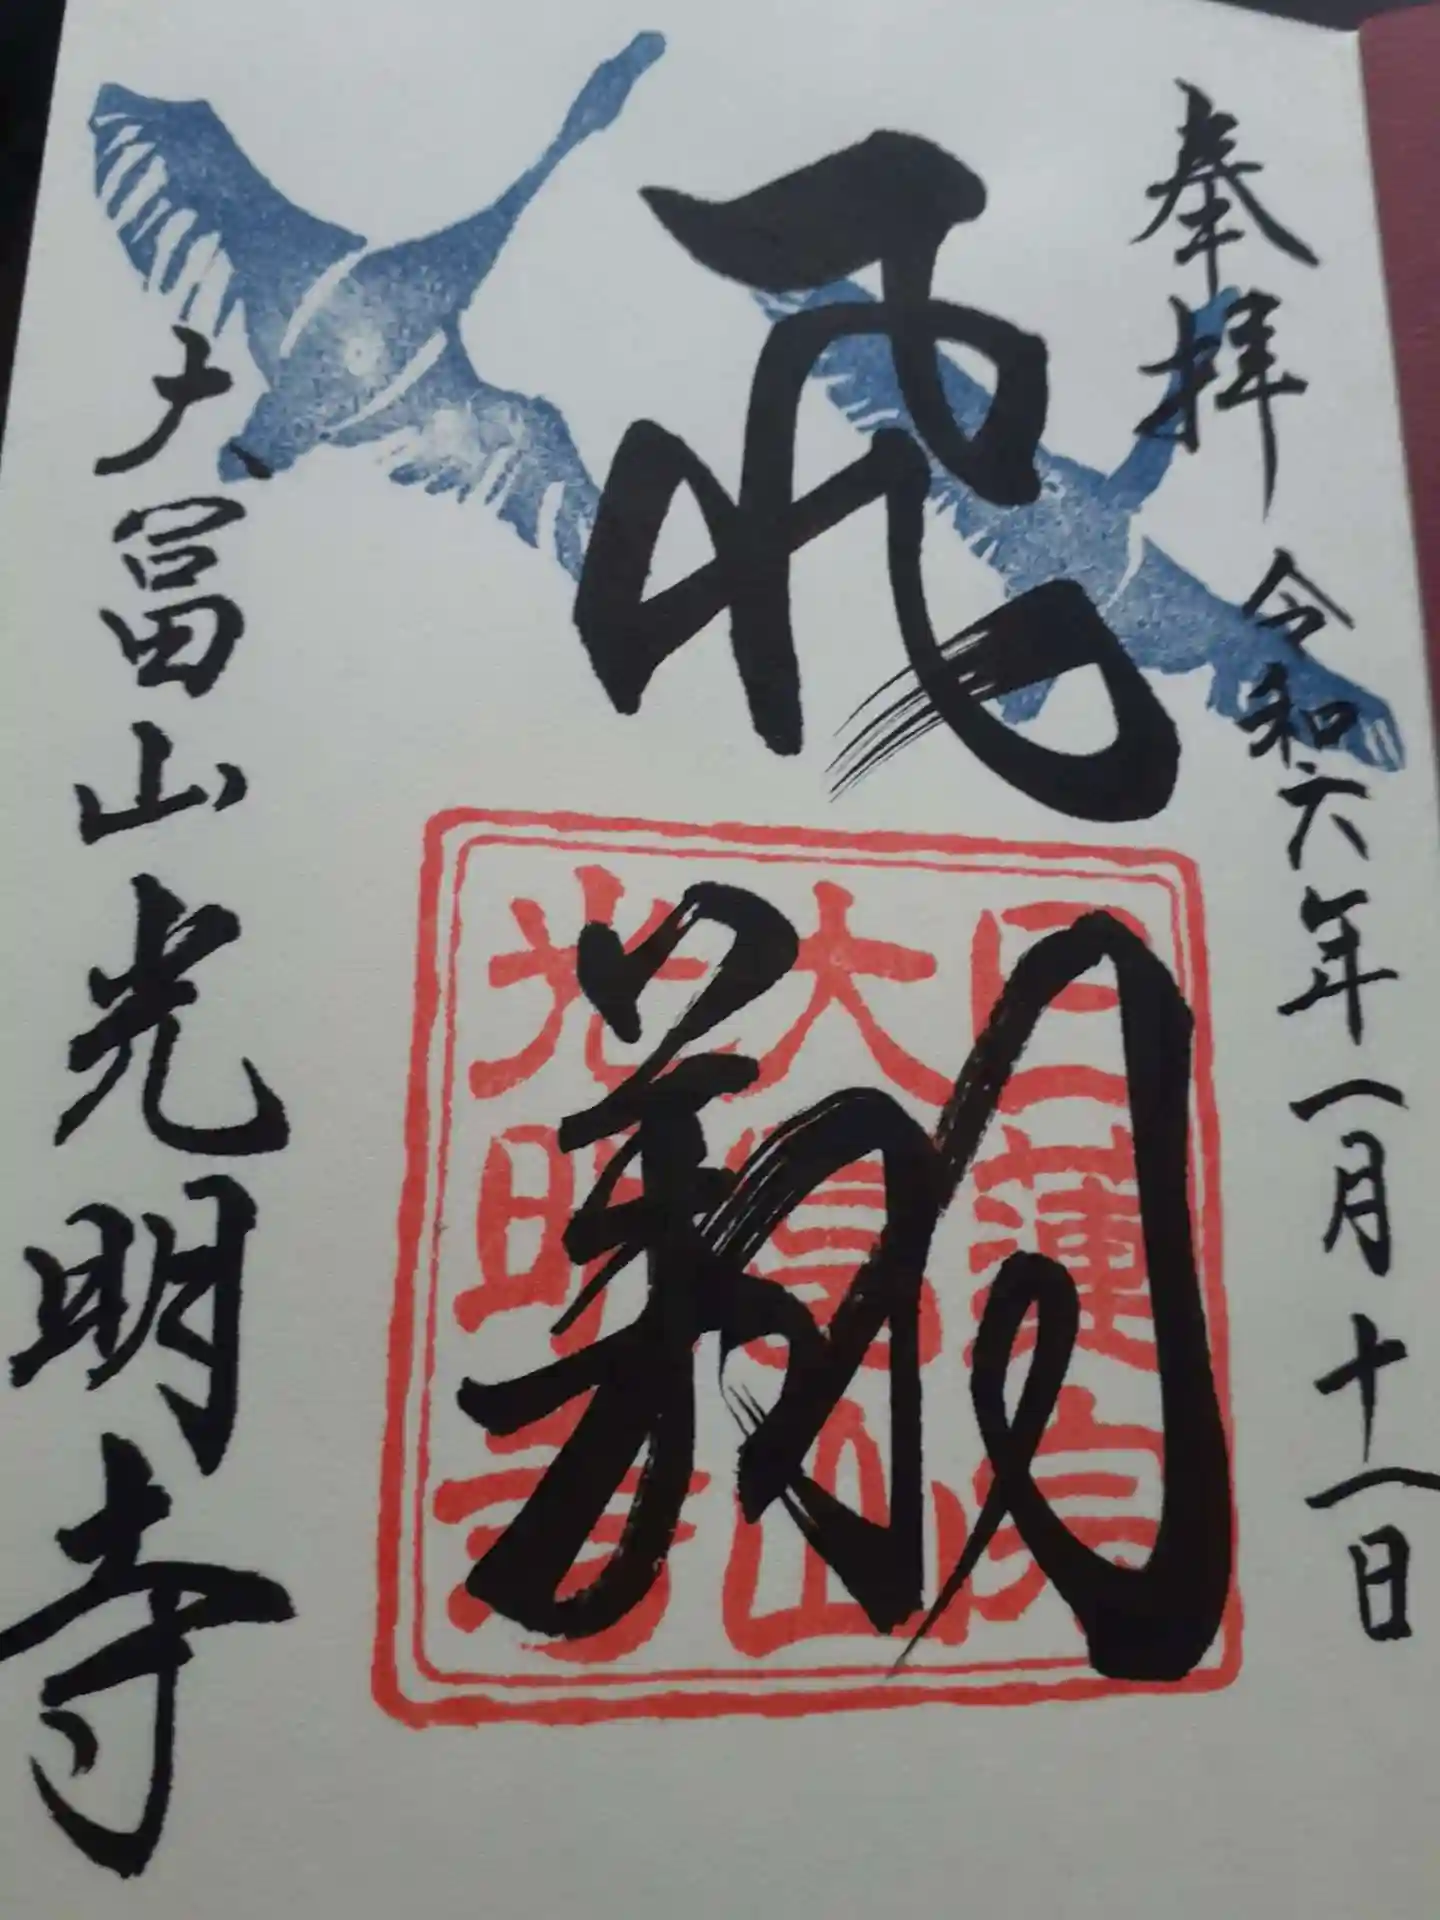 奉拝 令和六年一月十八日
飛翔
日蓮宗
大冨山
光明寺
大冨山光明寺